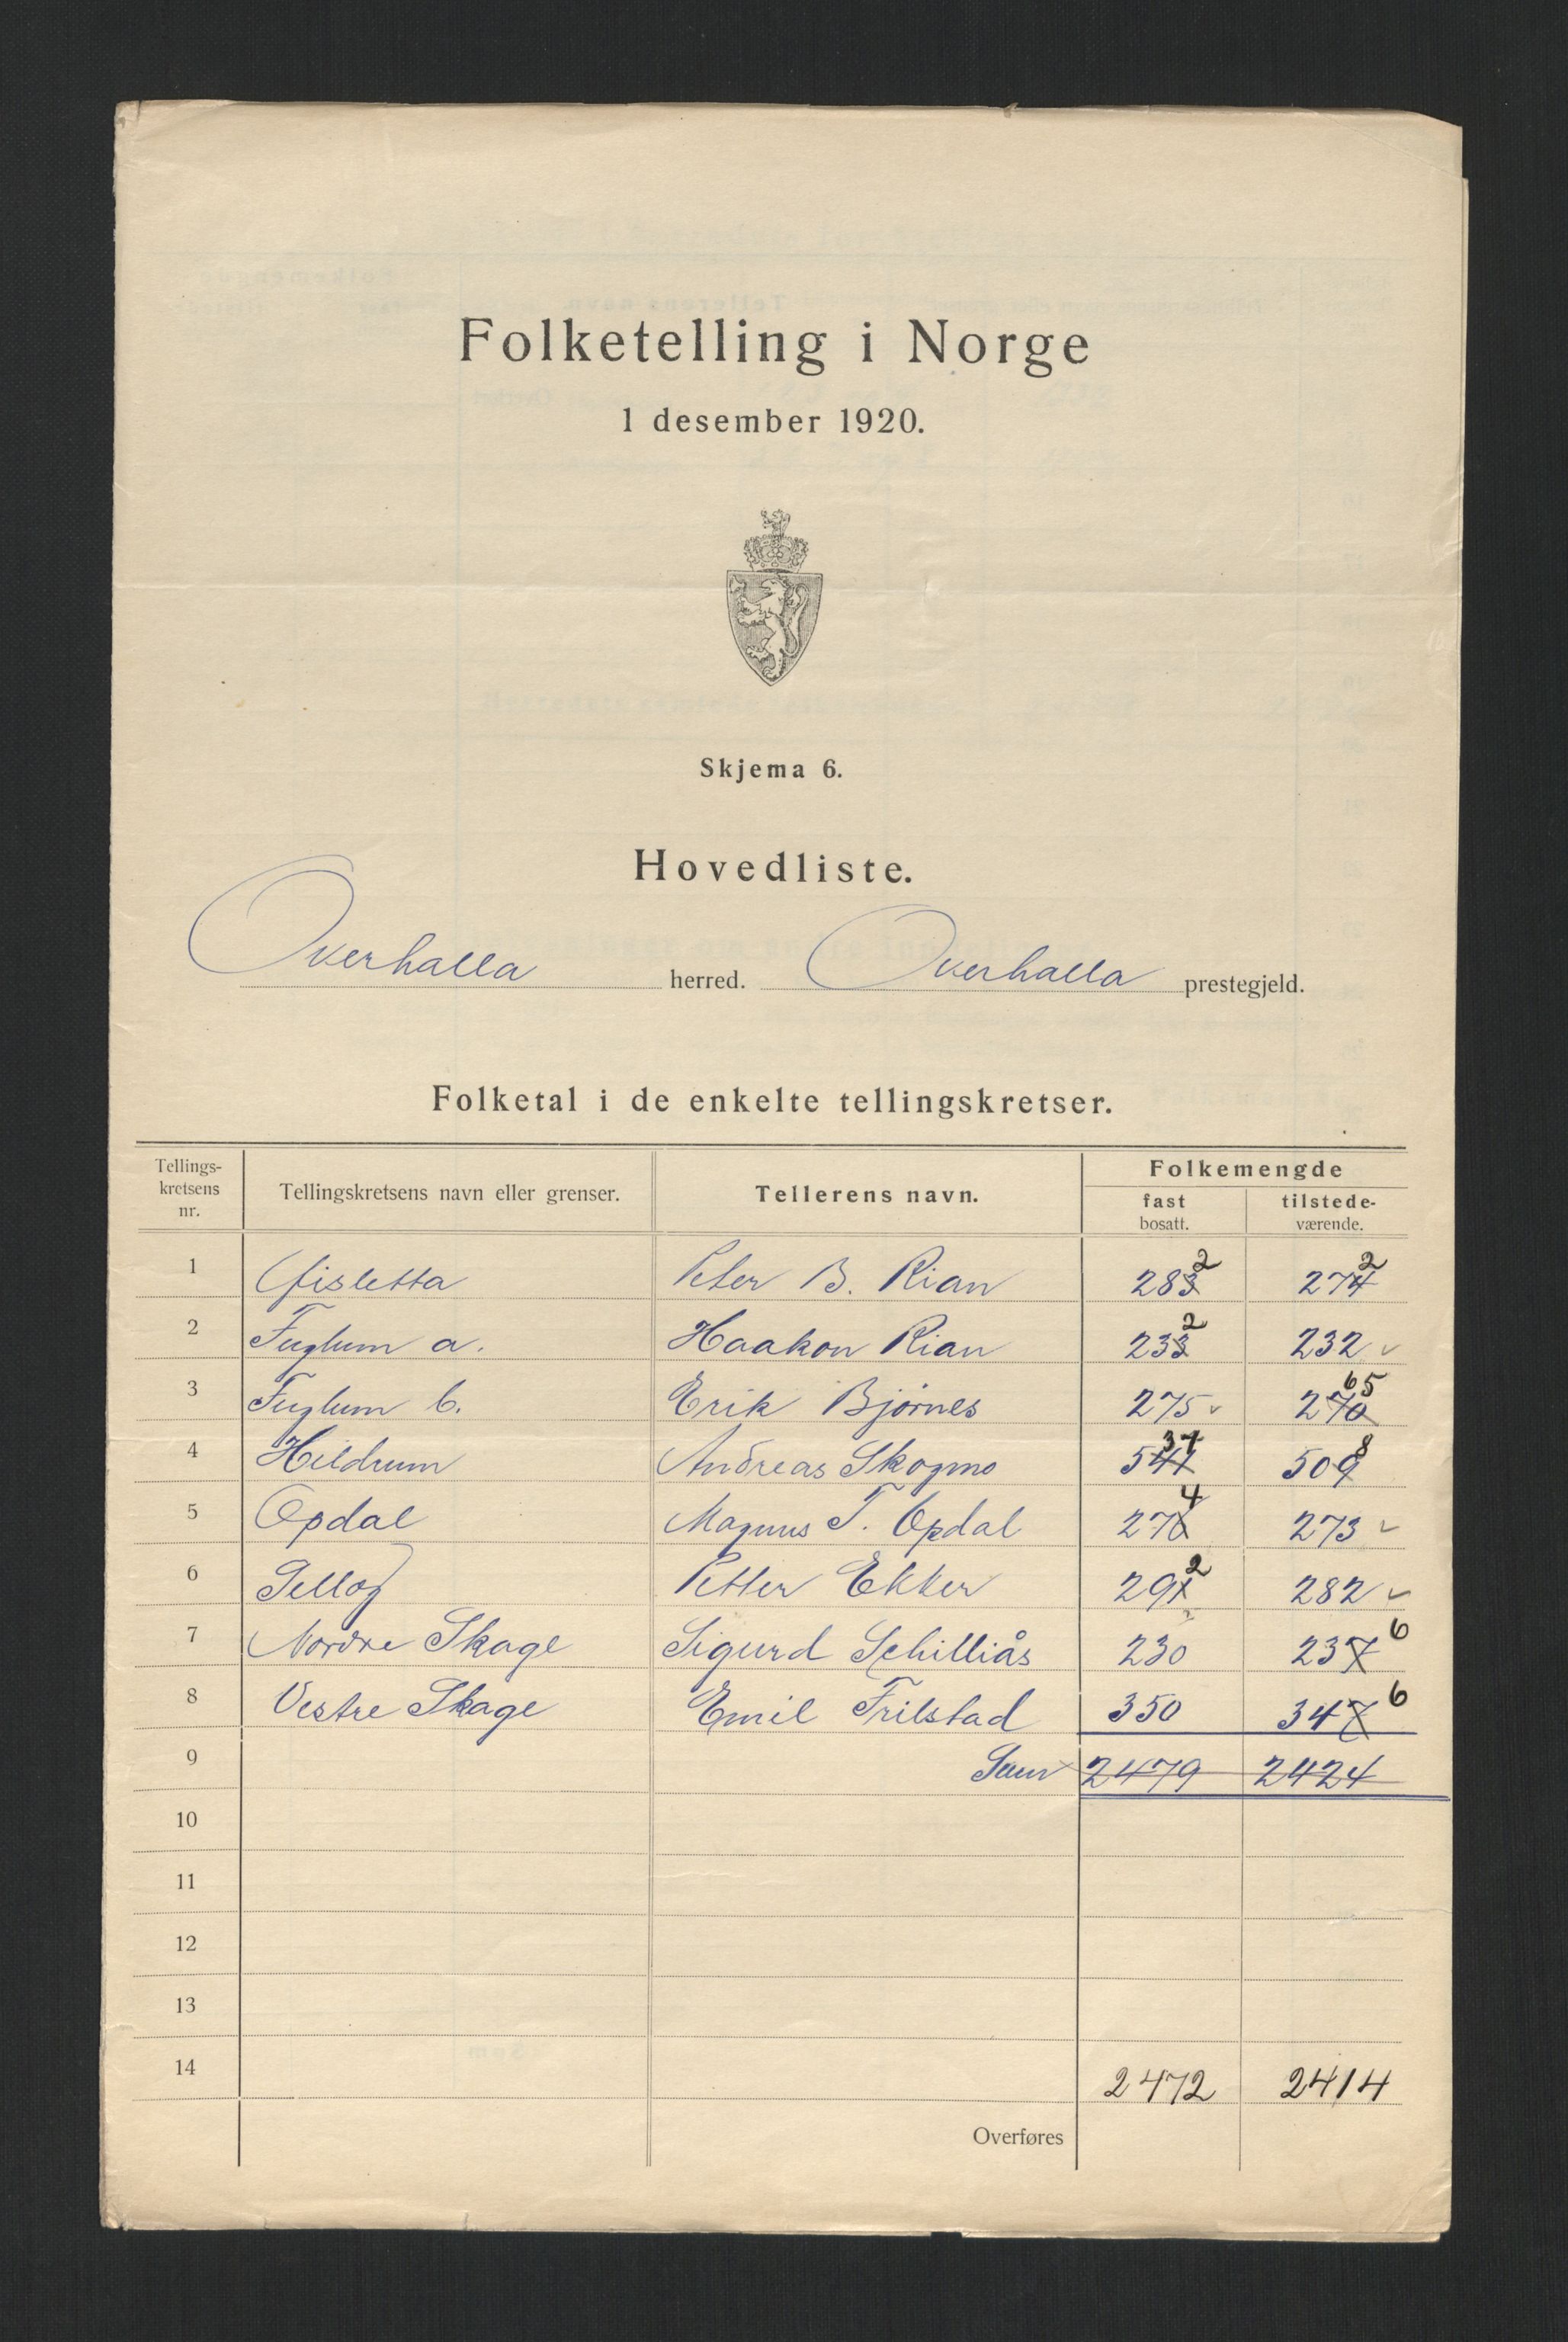 Folketelling i Norge
1 desember 1920.
Skjema 6.
Hovedliste.
Overhalla herred. Overhalla prestegjeld.
Folketal i de enkelte tellingskretser.
Tellings-kretsens nr. Tellingskretsens navn eller grenser. Tellerens navn. Folkemengde
fast bosatt. tilstede-værende.
1 Gisletta Peter B. Rian 283 2 274 2
2 Fuglum a. Haakon Rian 233 2 232
3 Fuglum b. Erik Bjørnes 275 270 65
4 Hildrum Andreas Skogmo 541 37 509 8
5 Opdal Magnus T. Opdal 4 273
6 Petter Ekker 291 2 282
7 Nordre Skage Sigurd 230 237 6
8 Vestre Skage Emil Frilstad 350 347 6
9 Sum 2479 2424
10
11
12
13
14 2472 2414
Overføres